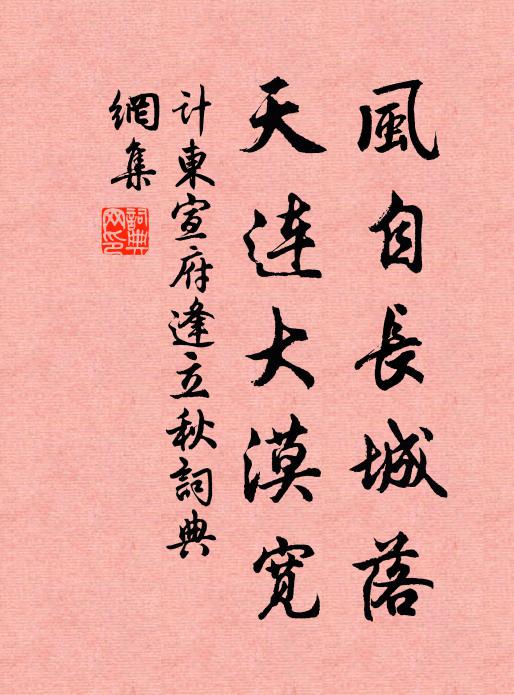 風自長城落
天連大漠寬
计東宣府逢立秋詞典
網集
詞典網印